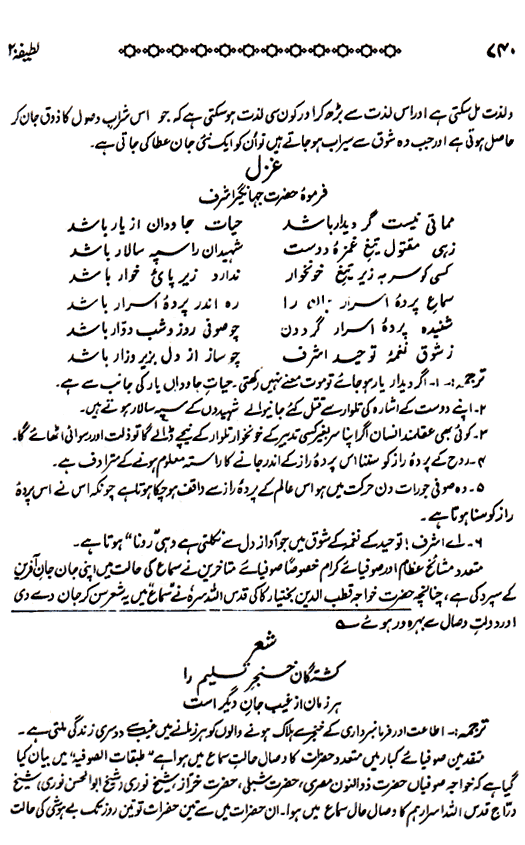 ۷۴۰
لطیفہ ۲۰
ولذت مل سکتی ہے اور اس لذت سے بڑھ کر اور کون سی لذت ہوسکتی ہے کہ جو اس شراب وصول کا ذوق جان کر
حاصل ہوتی ہے اور جب وہ شوق سے سیراب ہو جاتے ہیں تو اُن کو ایک نئی جان عطا کی جاتی ہے۔
غزل
فرمودۂ حضرت جہانگیر اشرف
مماتی نیست گر دیدار باشد حیات جاودان از یار باشد
زہی مقتول تیغ غمزۂ دوست شہیدان را سپہ سالار باشد
کسی کو سر بہ زیر تیغ خونخوار ندارد زیر پائے خوار باشد
سماع پردۂ اسرار را رہ اندر پردۂ اسرار باشد
شنیدہ پردۂ اسرار گردون چو صوفی روز و شب دوّار باشد
ز شوق نغمۂ توحید اشرف چو ساز از دل بزیر و زار باشد
ترجمہ:۔ ۱۔ اگر دیدار یار ہو جائے تو موت معنے نہیں رکھتی۔ حیاتِ جاوداں یار کی جانب سے ہے۔
۲۔ اپنے دوست کے اشارہ کی تلوار سے قتل کئے جانیوالے شہیدوں کے سپہ سالار ہوتے ہیں۔
۳۔ کوئی بھی عقلمند انسان اگر اپنا سر بغیر کسی تدبیر کے خونخوار تلوار کے نیچے ڈالے گا تو ذلت اور رسوائی اٹھائے گا۔
۴۔ روح کے پردۂ راز کو سننا اس پردۂ راز کے اندر جانے کا راستہ معلوم ہونے کے مترادف ہے۔
۵۔ وہ صوفی جو رات دن حرکت میں ہو اس عالم کے پردۂ راز سے واقف ہو چکا ہوتا ہے چونکہ اس نے اس پردۂ
راز کو سنا ہوتا ہے۔
۶۔ اے اشرف! توحید کے نغمہ کے شوق میں جو آواز دل سے نکلتی ہے وہی "رونا" ہوتا ہے۔
متعدد مشائخ عظام اور صوفیائے کرام خصوصاً صوفیائے متاخرین نے سماع کی حالت میں اپنی جان جانِ آفرین
کے سپرد کی ہے، چنانچہ حضرت خواجہ قطب الدین بختیار کاکی قدس اللہ سرہ نے "سماع" میں یہ شعر سن کر جان دے دی
اور دولتِ وصال سے بہرہ ور ہوئے ؎
شعر
کشتگان خنجر تسلیم را
ہر زمان از غیب جانِ دیگر است
ترجمہ:۔ اطاعت اور فرمانبرداری کے خنجر سے ہلاک ہونے والوں کو ہر زمانے میں غیب سے دوسری زندگی ملتی ہے۔
متقدمین صوفیائے کبار میں متعدد حضرات کا وصال حالتِ سماع میں ہوا ہے "طبقات الصوفیہ" میں بیان کیا
گیا ہے کہ خواجہ صوفیاں حضرت ذوالنون مصری، حضرت شبلی، حضرت خراز، شیخ نوری، شیخ ابوالحسن نوری، شیخ
درّاج قدس اللہ اسرارہم کا وصال حال سماع میں ہوا۔ ان حضرات میں سے تین حضرات تو تین روز تک بے ہوشی کی حالت